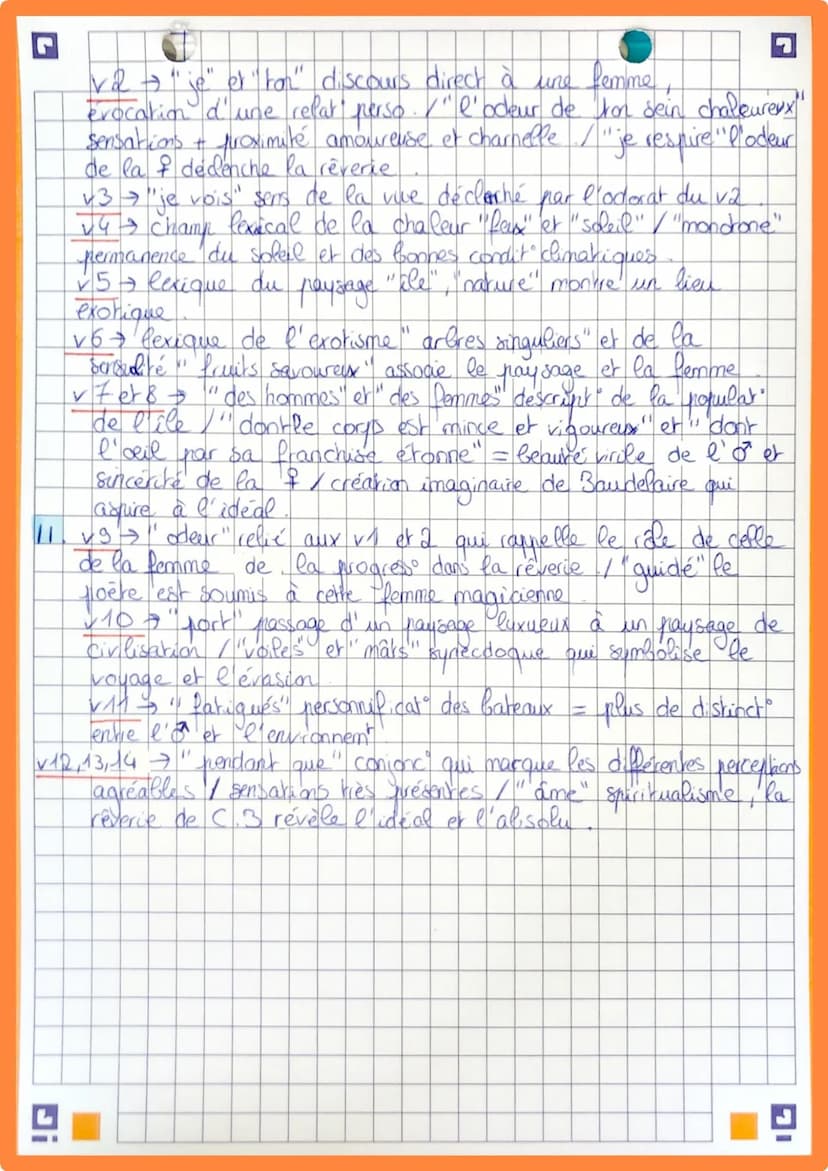 v2 → "je" et "ton" discours direct à une femme,
évocation d'une relat° perso. / "l'odeur de ton sein chaleureux"
sensations + proximité amoureuse et charnelle / "je respire" l'odeur
de la ♀ déclenche la rêverie.
v3 → "je vois" sens de la vue déclenché par l'odorat du v2.
v4 → champ lexical de la chaleur "feux" et "soleil" / "monotone"
permanence du soleil et des bonnes condit° climatiques.
v5 → lexique du paysage "île", "nature" montre un lieu
exotique.
v6 → lexique de l'exotisme "arbres singuliers" et de la
sensualité "fruits savoureux" associe le paysage et la femme.
v7 et 8 → "des hommes" et "des femmes" descript° de la populat°
de l'île / "dont le corps est mince et vigoureux" et "dont
l'oeil par sa franchise étonne" = beauté virile de l'♂ et
sincérité de la ♀ / création imaginaire de Baudelaire qui
aspire à l'idéal.
11. v9 → "odeur" relié aux v1 et 2 qui rappelle le rôle de celle
de la femme de la progress° dans la rêverie / "guidé" le
poète est soumis à cette femme magicienne.
v10 → "port" passage d'un paysage luxueux à un paysage de
civilisation / "voiles" et "mâts" synecdoque qui symbolise le
voyage et l'évasion.
v11 → "fatigués" personnificat° des bateaux = plus de distinct°
entre l'♂ et l'environnemt
v12,13,14 → "pendant que" conjonc° qui marque les différentes perceptions
agréables / sensations très présentes / "âme" spiritualisme, la
rêverie de C.B révèle l'idéal et l'absolu.